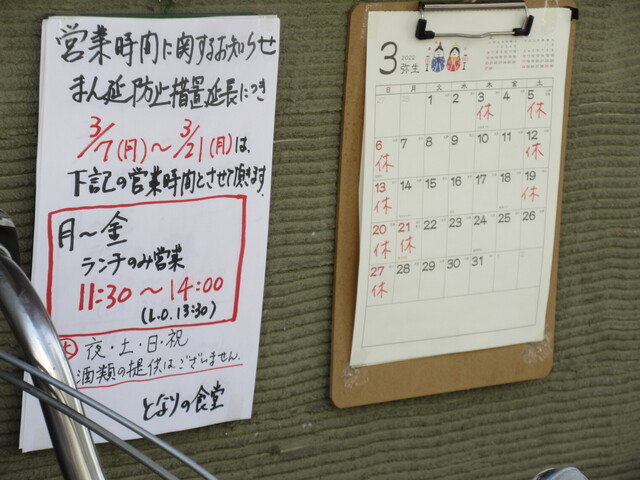 営業時間に関するお知らせ
まん延防止措置延長につき
3/7(月)〜3/21(月)は、
下記の営業時間とさせて頂きます.
月〜金
ランチのみ営業
11:30〜14:00
(L.O.13:30)
休 夜・土・日・祝
酒類の提供はございません.
となりの食堂
3 弥生
日 月 火 水 木 金 土
1 2 3 4 5
休 休
6 12
休 休
13 14 15 16 17 18 19
休 休
20 21 22 23 24 25 26
休 休
27 28 29 30 31
休